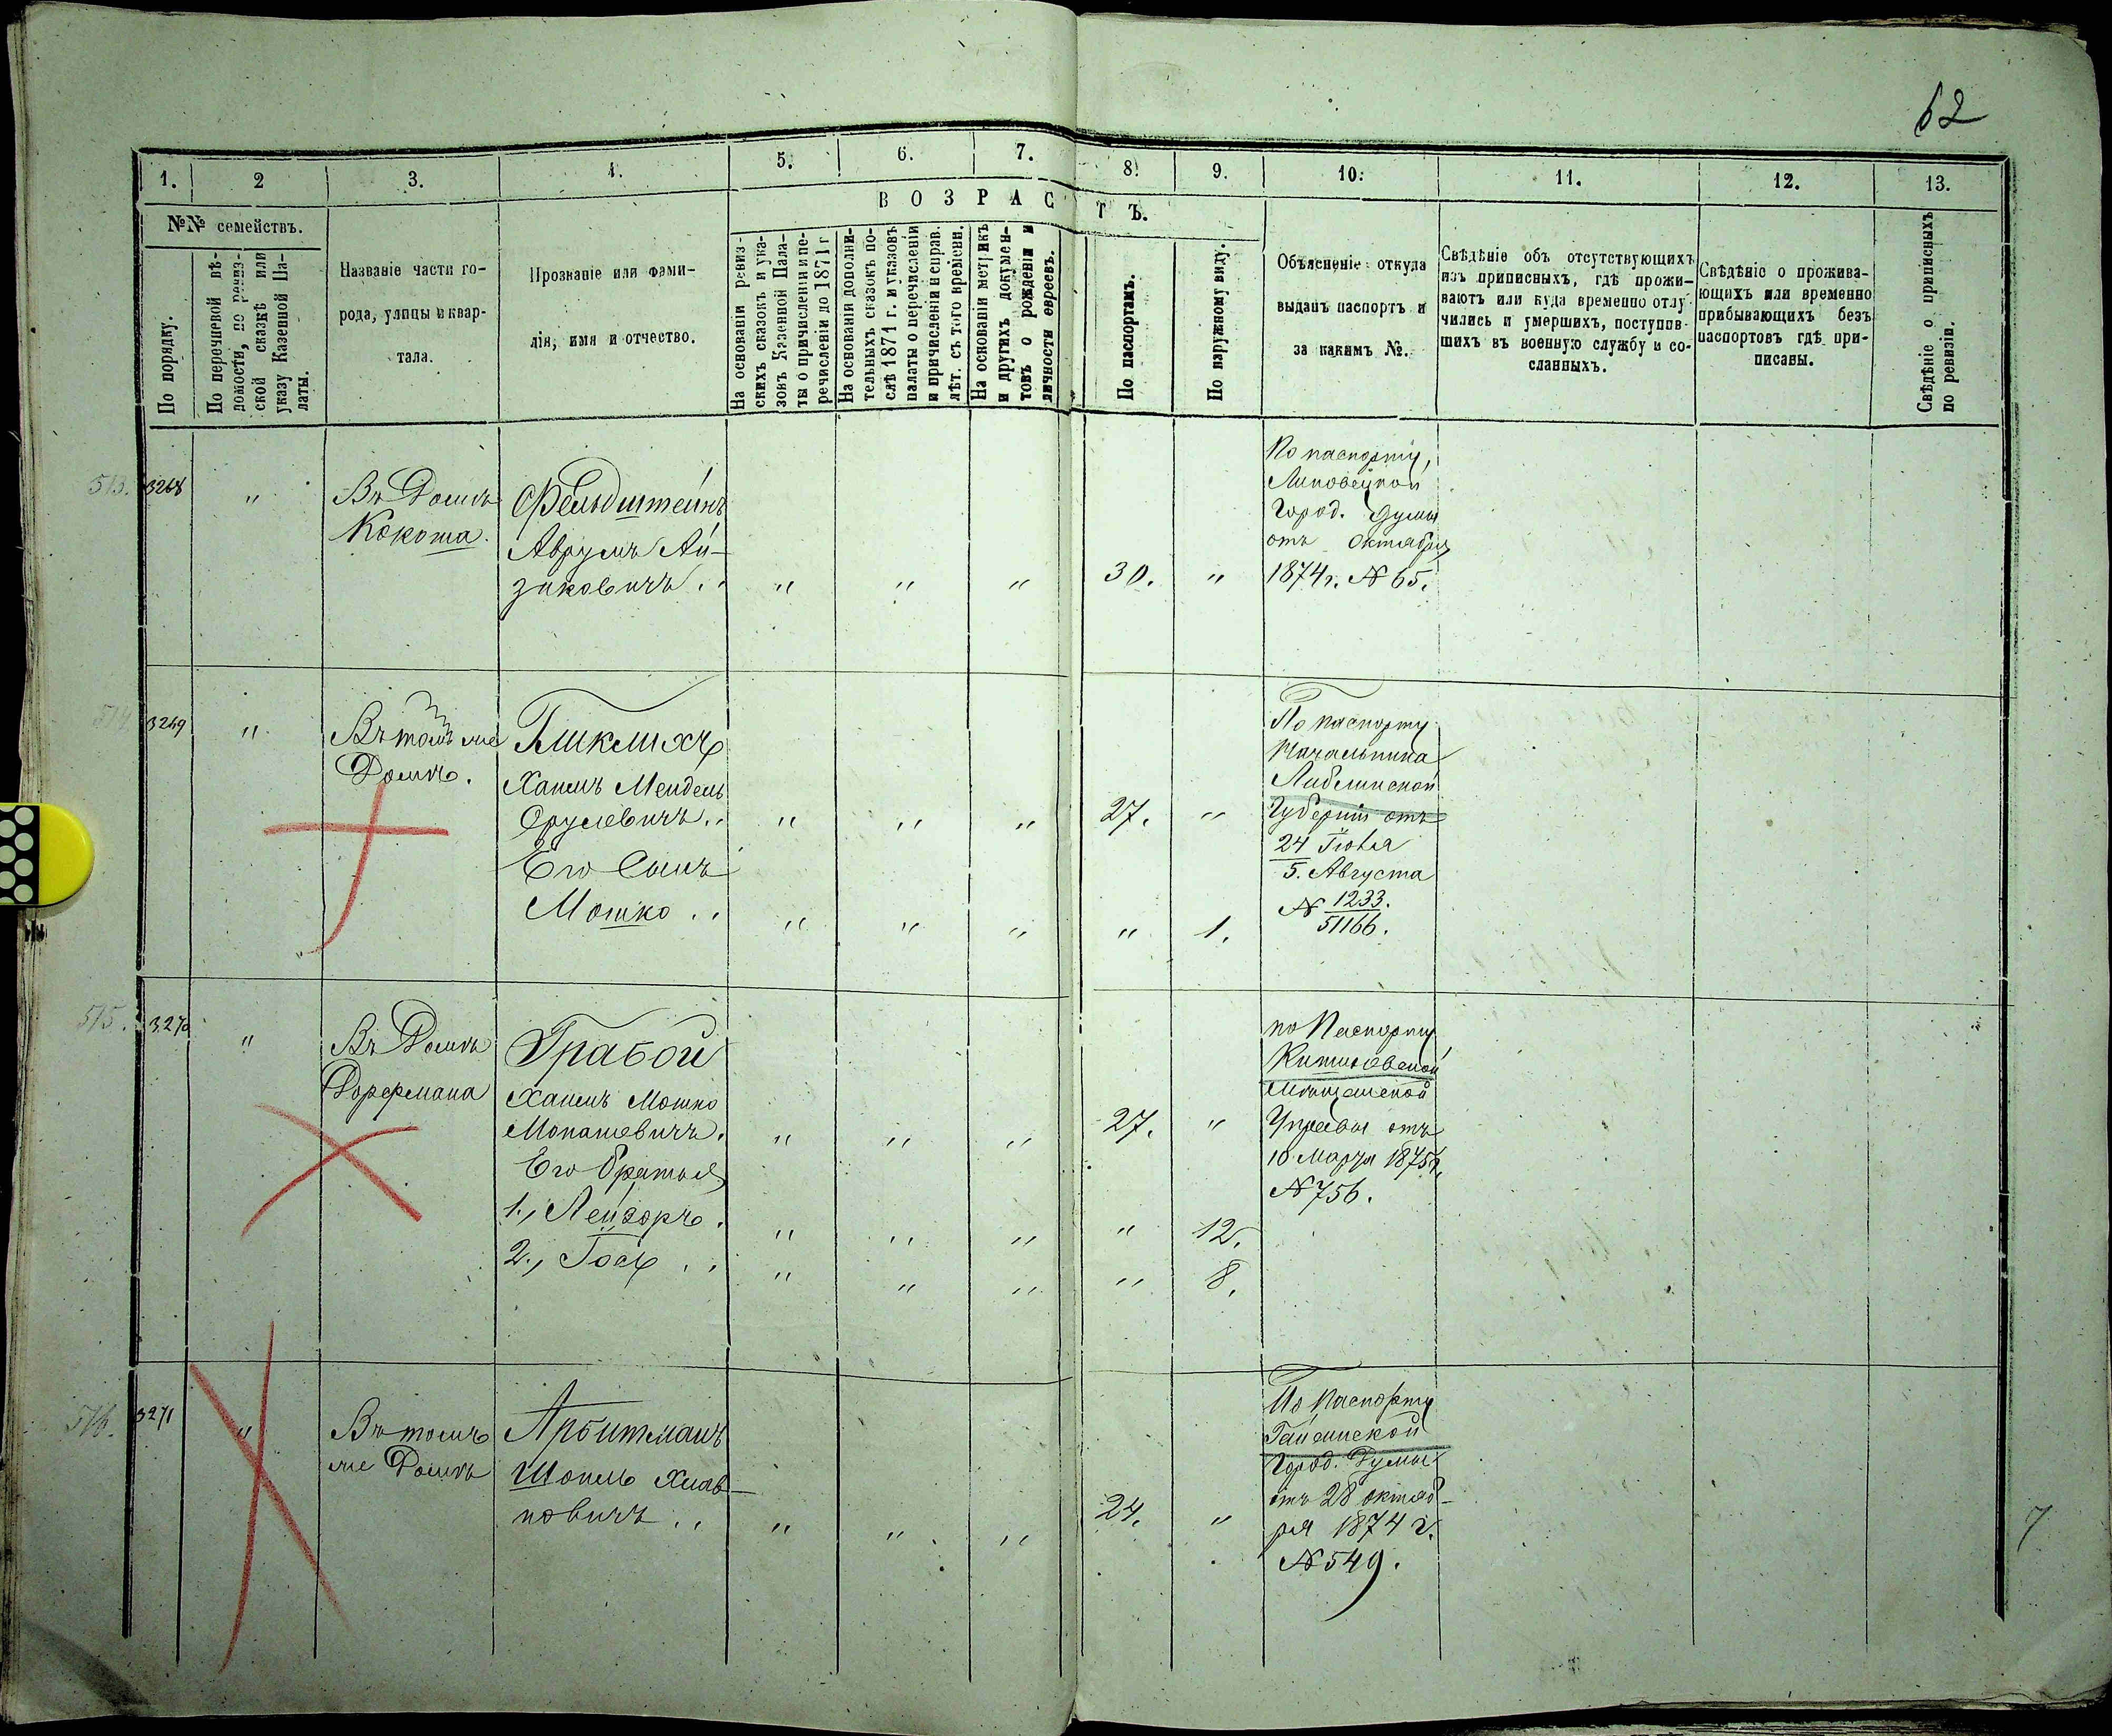 62
1.
2
3.
4.
5.
6.
7.
8.
9.
10.
11.
12.
13.
№№ семействъ.
По порядку.
По перечневой вѣ-
домости, по ревиз-
ской сказкѣ или
указу Казенной Па-
латы.
Названіе части го-
рода, улицы и квар-
тала.
Прозваніе или фами-
лія, имя и отчество.
ВОЗРАСТЪ.
На основаніи ревиз-
скихъ сказокъ и ука-
зовъ Казенной Пала-
ты о причисленіи и пе-
речисленіи до 1871 г
На основаніи дополни-
тельныхъ сказокъ по-
слѣ 1871 г. и указовъ
палаты о перечисленіи
и причисленіи и справ.
лѣт. съ того времени.
На основаніи метрикъ
и другихъ докумен-
товъ о рожденіи и
личности евреевъ.
По паспортамъ.
По наружному виду.
Объясненіе откуда
выданъ паспортъ и
за какимъ №.
Свѣдѣніе объ отсутствующихъ
изъ приписныхъ, гдѣ прожи-
ваютъ или куда временно отлу-
чились и умершихъ, поступив-
шихъ въ военную службу и со-
сланныхъ.
Свѣдѣніе о прожива-
ющихъ или временно
прибывающихъ безъ
паспортовъ гдѣ при-
писаны.
Свѣдѣніе о приписныхъ
по ревизіи.
513.
3268
"
Въ Домѣ
Кокота.
Фельдштейнъ
Аврумъ Ай-
зиковичъ . .
" " "
30.
"
По паспорту,
Липовецкой
Город. Думы
отъ Октября
1874 г. № 65.
514
3269
"
Въ томъ же
Домѣ.
Гликлихъ
Хаимъ Мендель
Срулевичъ . .
" " "
27.
"
Его Сынъ
Мошко . .
" " "
"
1.
По паспорту
Начальника
Люблинской
Губерніи отъ
24 Іюля
5. Августа
№ 1233.
51166.
515.
3270
"
Въ Домѣ
Дорфмана
Грабой
Хаимъ Мошко
Монашевичъ.
" " "
27.
"
Его братья
1., Лейзоръ .
" " "
"
12.
2., Іосъ . .
" " "
"
8.
по Паспорту
Мѣщанской
Управы отъ
18 Марта 1875 г.
№ 756.
516.
3271
"
Въ томъ
же Домѣ
Арбитманъ
Шопель Хлав-
новичъ . .
" " "
24.
"
По паспорту
Гайсинской
Город. Думы
отъ 28 октяб-
ря 1874 г.
№ 549.
7